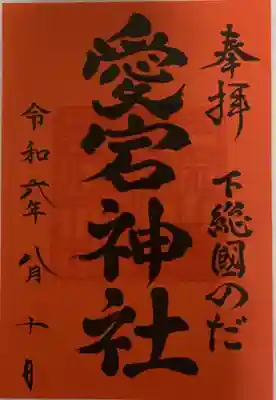 奉拝 下総國のだ
愛宕神社
令和六年 八月 十月